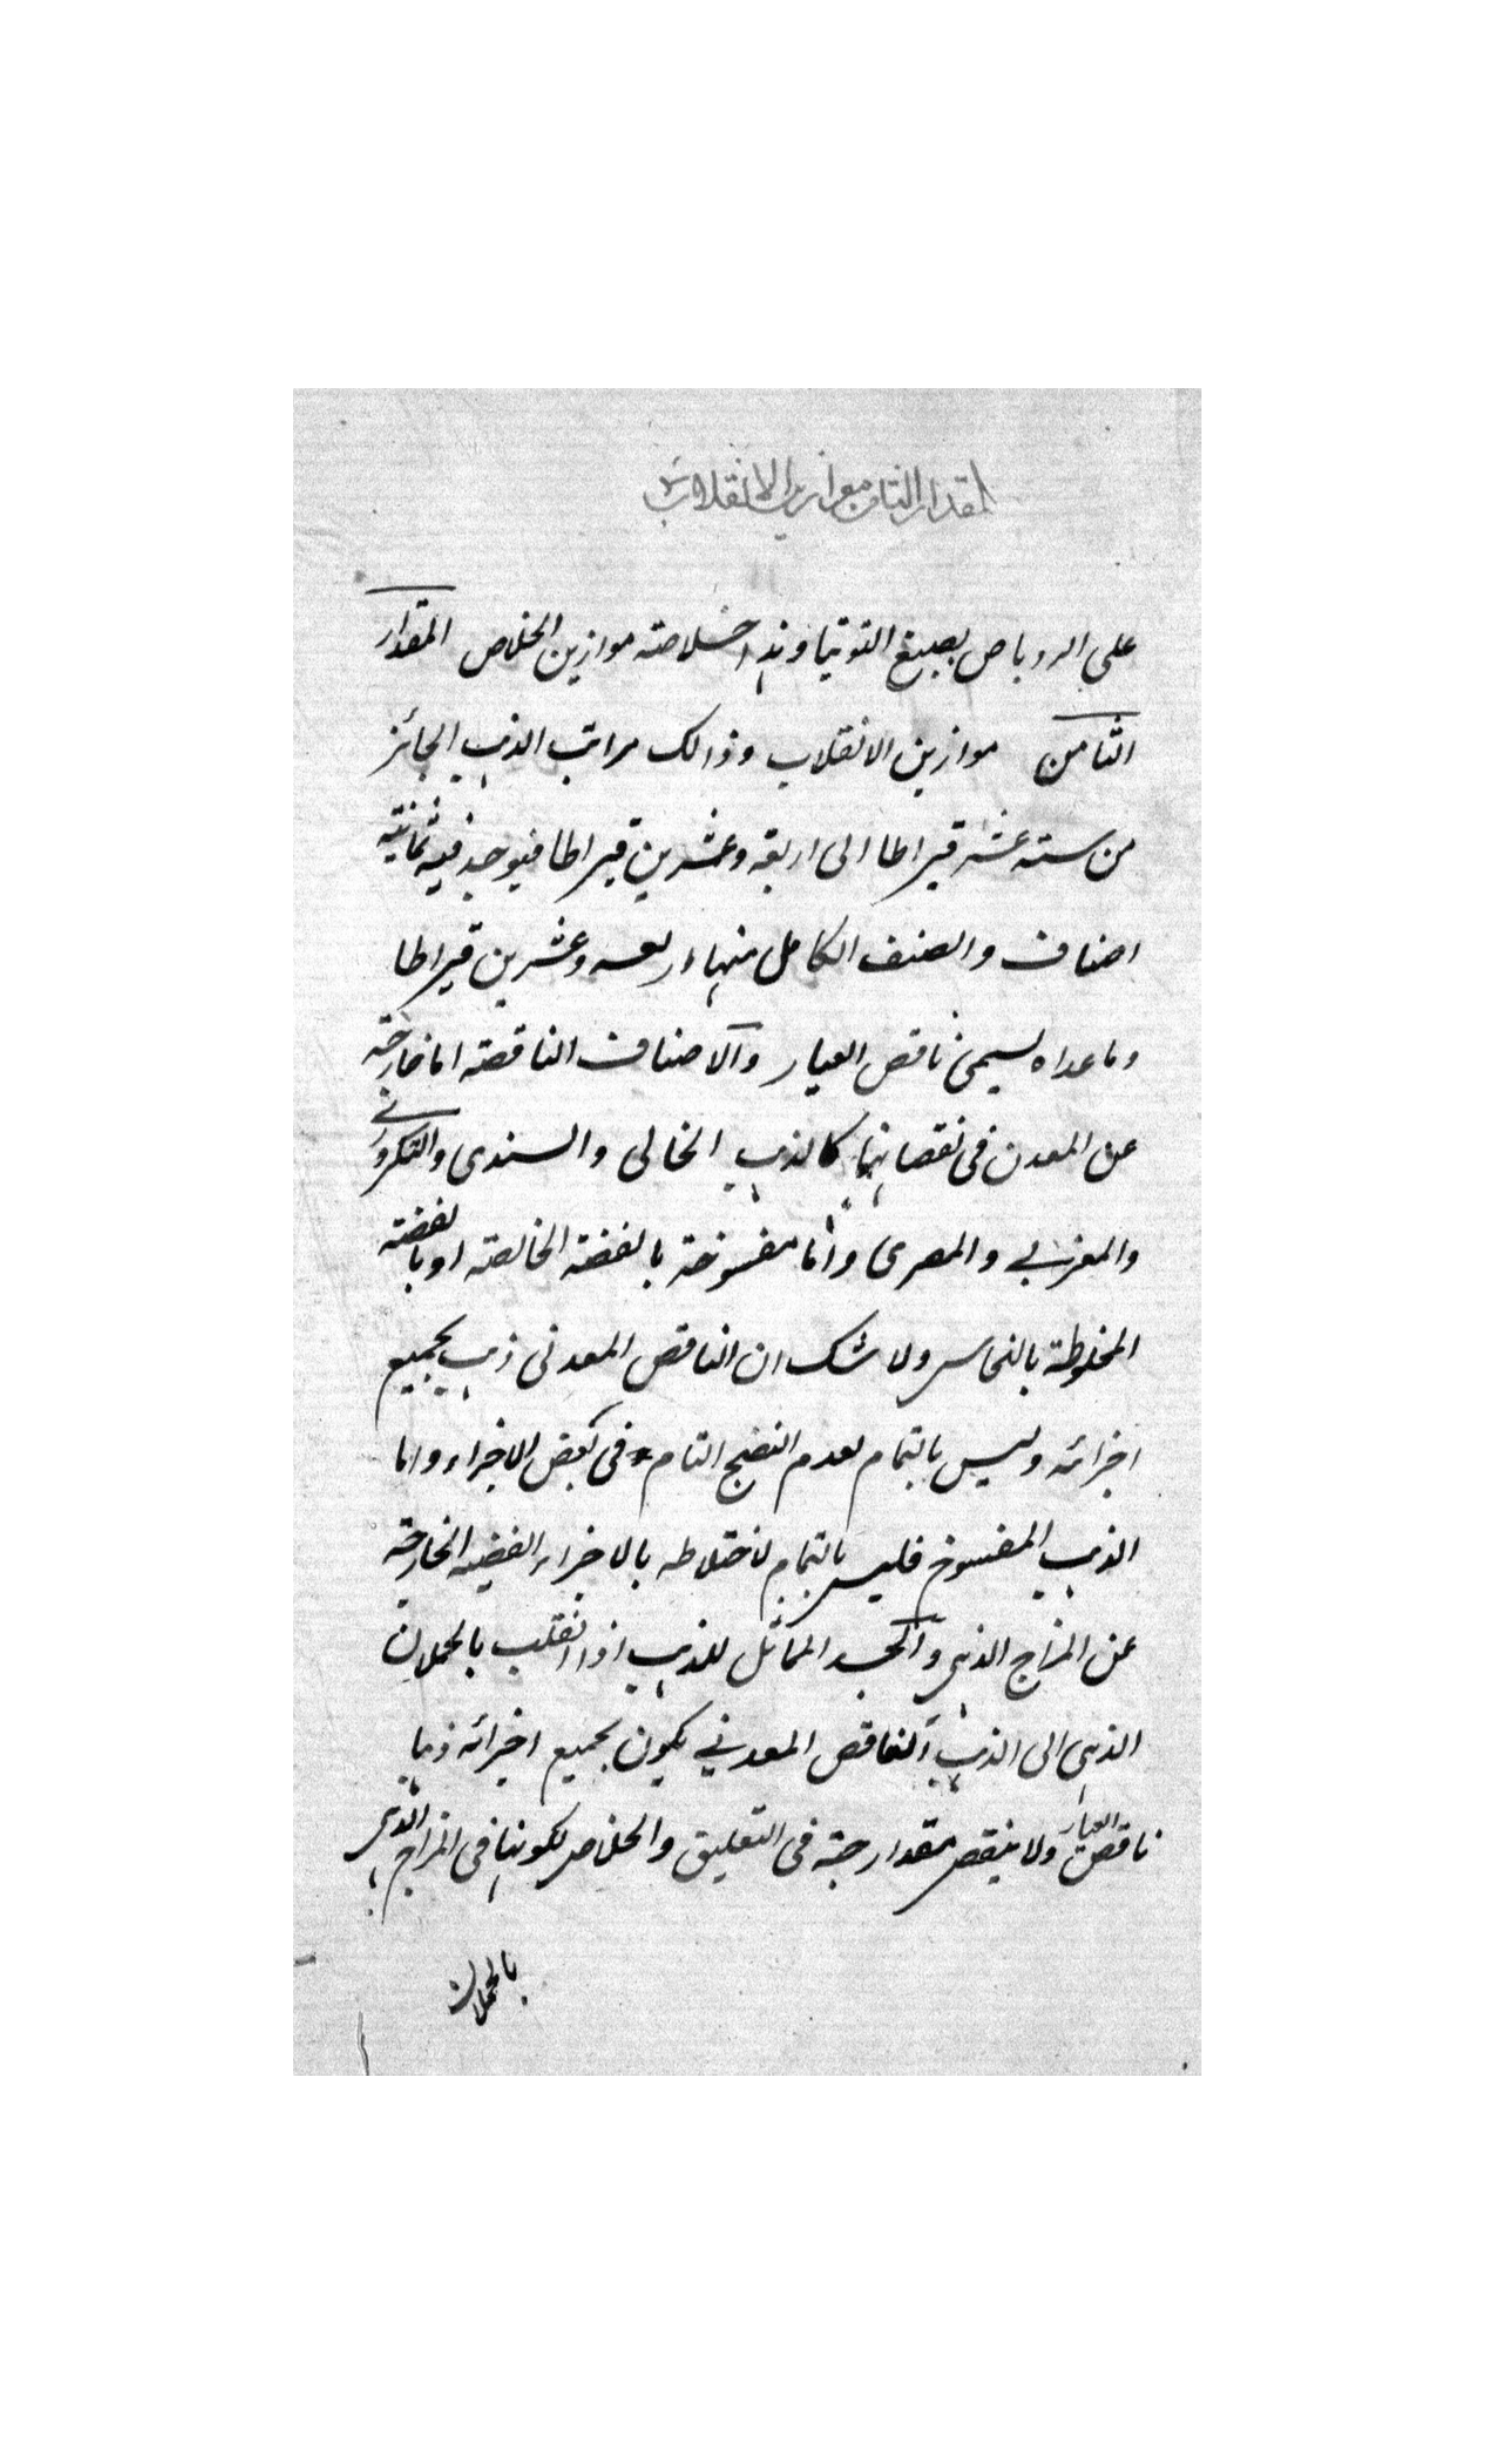 المقدار الثامن موازين الانقلاب
على الروباص بصبغ التوتيا وهذا خلاصة موازين الخلاص المقدار
الثامن موازين الانقلاب وذالك مراتب الذهب الجائز
من ستة عشر قيراطا الى اربعة وعشرين قيراطا فيوجد فيه ثمانية
اصناف والصنف الكامل منها اربعة وعشرين قيراطا
وما عداه يسمى ناقص العيار والاصناف الناقصة اما خارجة
عن المعدن فى نقصانها كالذهب الخالى والسندى والتكرورى
والمغربي والمصرى واما مفسوخة بالفضة الخالصة او بالفضة
المخلوطة بالنحاس ولا شك ان الناقص المعدنى ذهب بجميع
اجزائه وليس بالتمام لعدم النضج التام فى بعض الاجزاء واما
الذهب المفسوخ فليس بالتمام لاختلاطه بالاجزاء الفضية الخارجة
عن المزاج الذهبى والجسد المماثل للذهب اذا انقلب بالحملان
الذهبى الى الذهب الناقص المعدني يكون بجميع اجزائه ذهبا
ناقص العيار ولا ينقص مقدار حبة فى التعليق والخلاص لكونها فى المزاج الذهبى
بالحملان